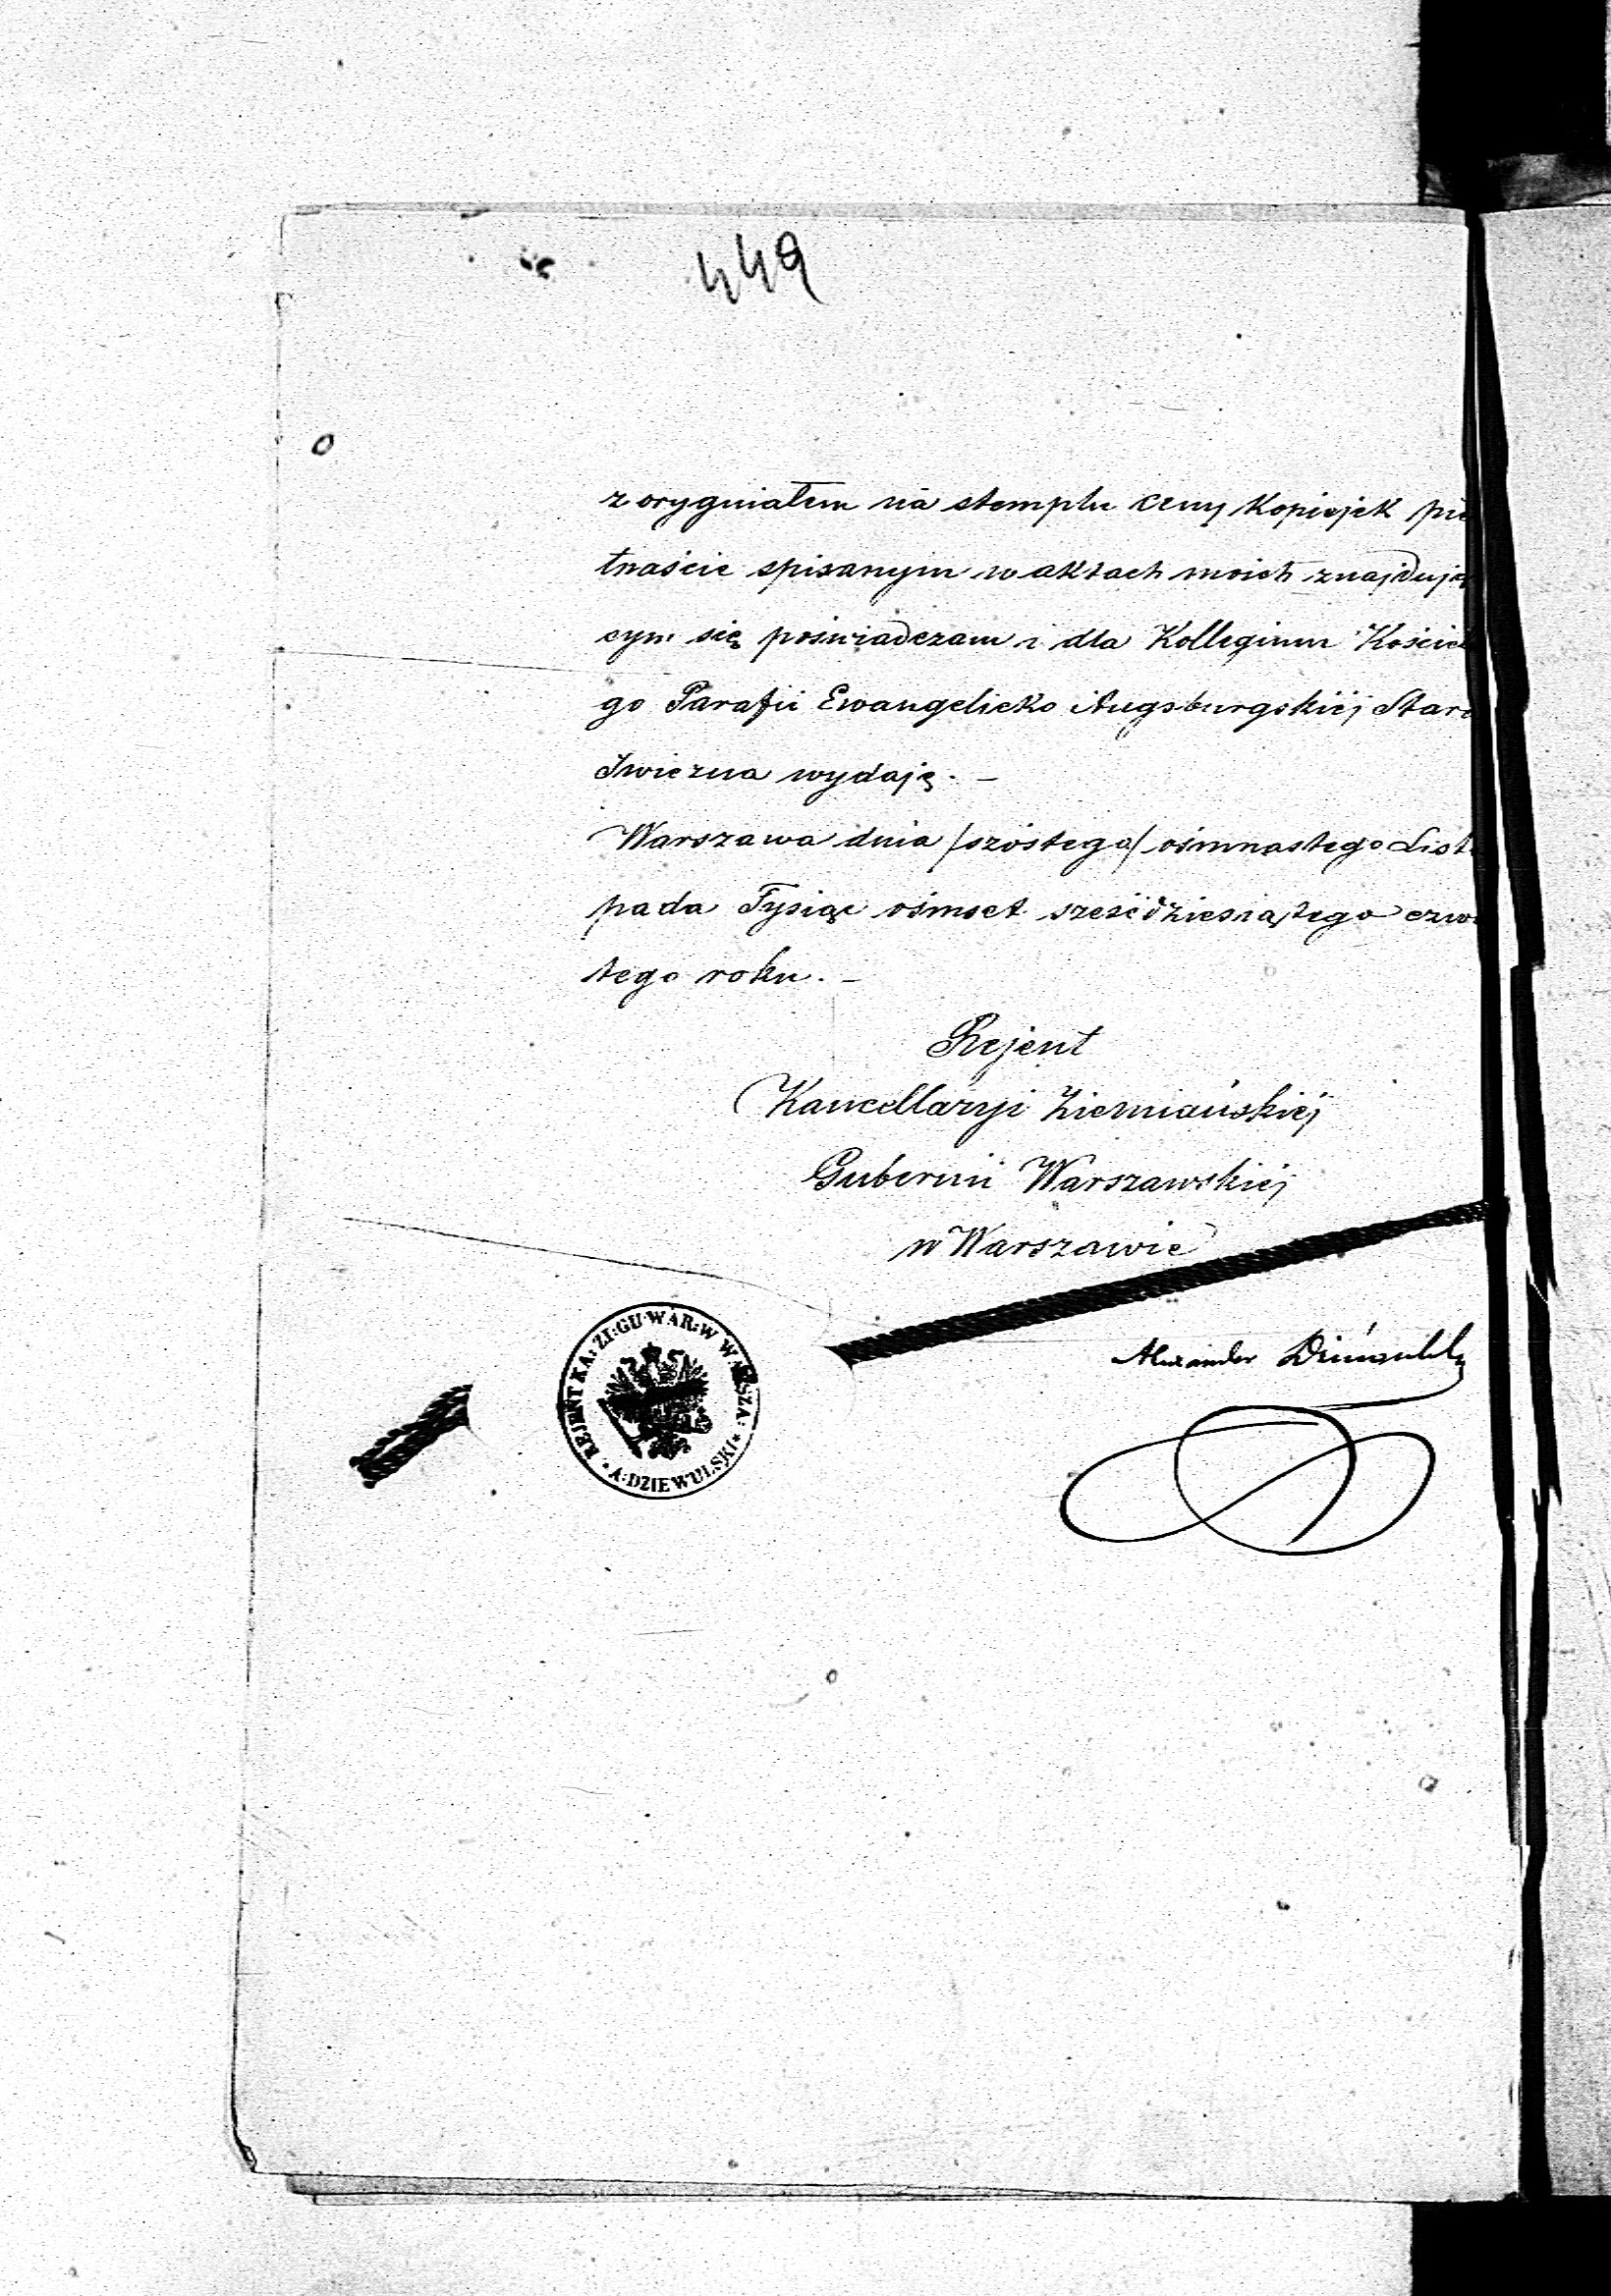 449
z oryginałem na stemplu ceny Kopiejek pię
tnaście spisanym w aktach moich znajdują
cym się poświadczam i dla Kollegium Kościel
go Parafii Ewangelicko Augsburgskiéj Stara
Iwiczna wydaję. —
Warszawa dnia /szóstego/ ośmnastego Listo
pada Tysiąc ośmset sześćdziesiątego czwa
tego roku. —
Rejent
Kancellaryi Ziemiańskiéj
Gubernii Warszawskiéj
w Warszawie
Alexander
REJENT KA: ZI: GU: WAR: W WARSZA:
A: DZIEWULSKI